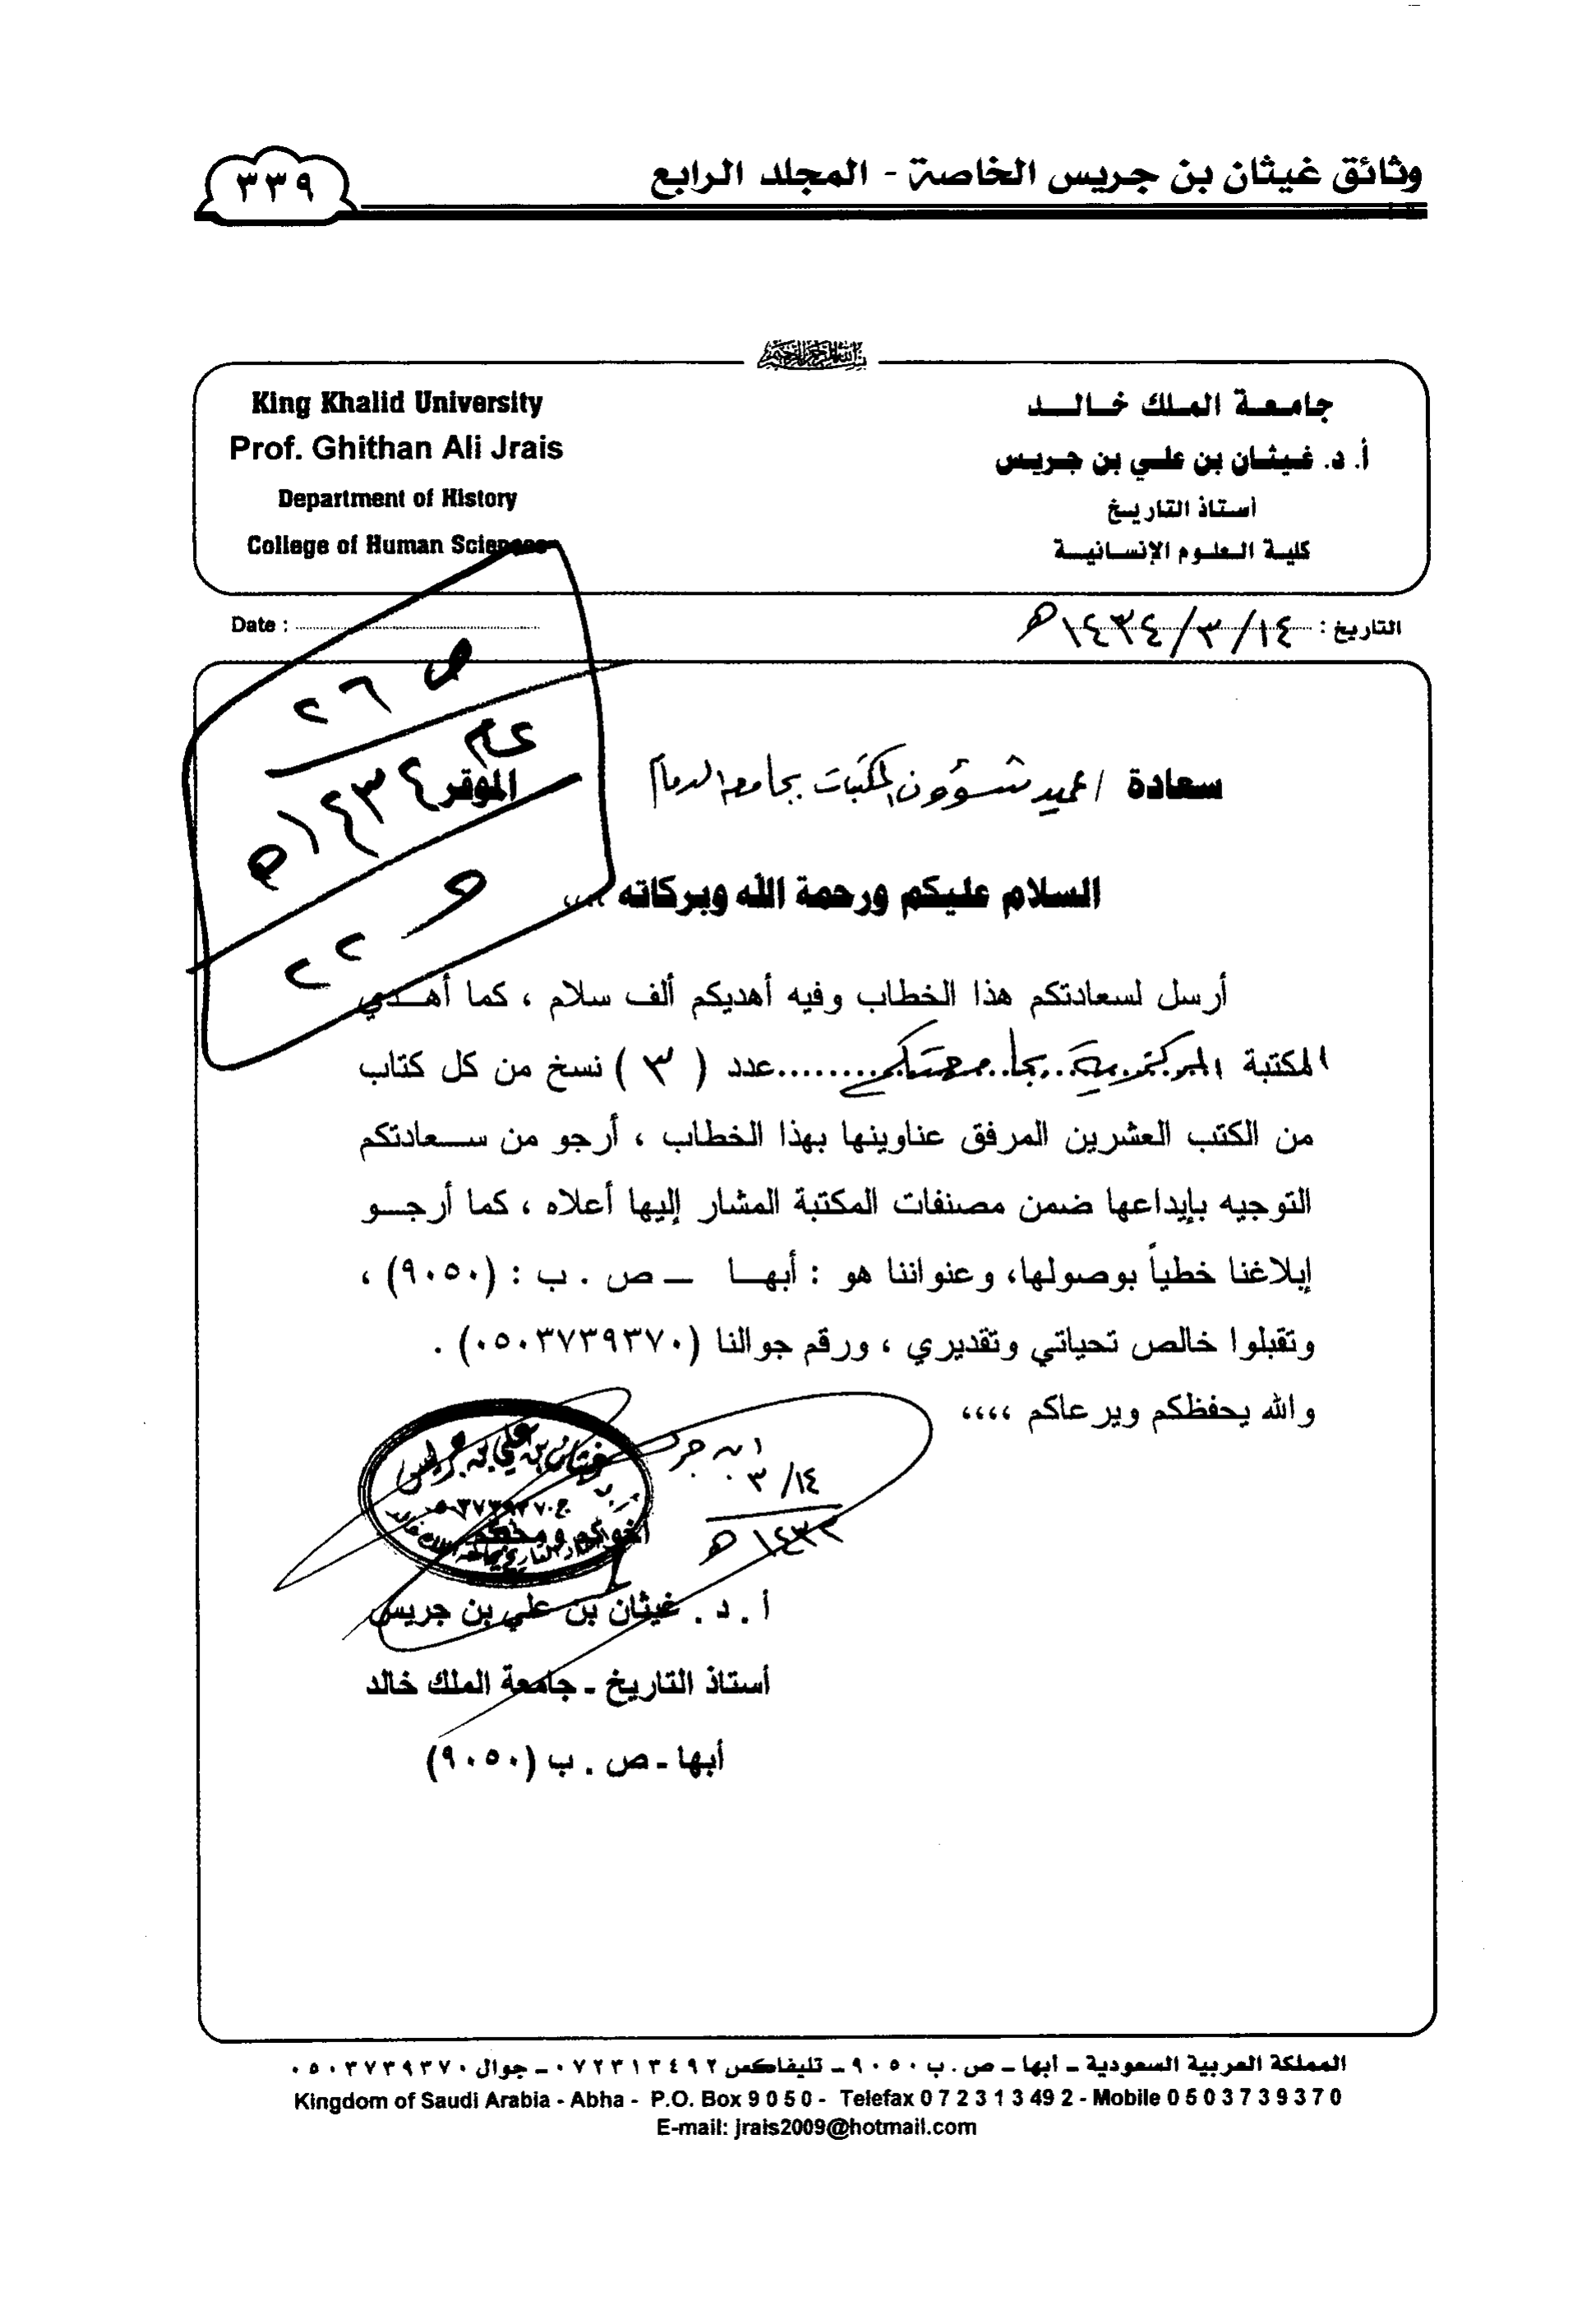 وثائق غيثان بن جريس الخاصة - المجلد الرابع
٣٣٩
بسم الله الرحمن الرحيم
جامعة الملك خالد
أ. د. غيثان بن علي بن جريس
أستاذ التاريخ
كلية العلوم الإنسانية
King Khalid University
Prof. Ghithan Ali Jrais
Department of History
College of Human Sciences
التاريخ : ١٤٣٤/٣/١٤هـ
Date :
ص ٢٦
عام ١٤٣٤هـ
و ٢٢
سعادة / عميد شؤون المكتبات بجامعة الدمام الموقر
السلام عليكم ورحمة الله وبركاته ،،،
أرسل لسعادتكم هذا الخطاب وفيه أهديكم ألف سلام ، كما أهدي
المكتبة المركزية بجامعتكم عدد ( ٣ ) نسخ من كل كتاب
من الكتب العشرين المرفق عناوينها بهذا الخطاب ، أرجو من سعادتكم
التوجيه بإيداعها ضمن مصنفات المكتبة المشار إليها أعلاه ، كما أرجو
إبلاغنا خطياً بوصولها، وعنواننا هو : أبها – ص . ب : (٩٠٥٠) ،
وتقبلوا خالص تحياتي وتقديري ، ورقم جوالنا (٠٥٠٣٧٣٩٣٧٠) .
والله يحفظكم ويرعاكم ،،،،
ابن جريس
٣/١٤
أ.د غيثان بن علي بن جريس
ج ٠٥٠٣٧٣٩٣٧٠
أستاذ التاريخ بجامعة الملك خالد
أخوكم ومحبكم
أ . د . غيثان بن علي بن جريس
أستاذ التاريخ - جامعة الملك خالد
أبها - ص . ب (٩٠٥٠)
المملكة العربية السعودية - أبها - ص . ب ٩٠٥٠ - تليفاكس ٠٧٢٣١٣٤٩٢ - جوال ٠٥٠٣٧٣٩٣٧٠
Kingdom of Saudi Arabia - Abha - P.O. Box 9 0 5 0 - Telefax 0 7 2 3 1 3 49 2 - Mobile 0 5 0 3 7 3 9 3 7 0
E-mail: jrais2009@hotmail.com